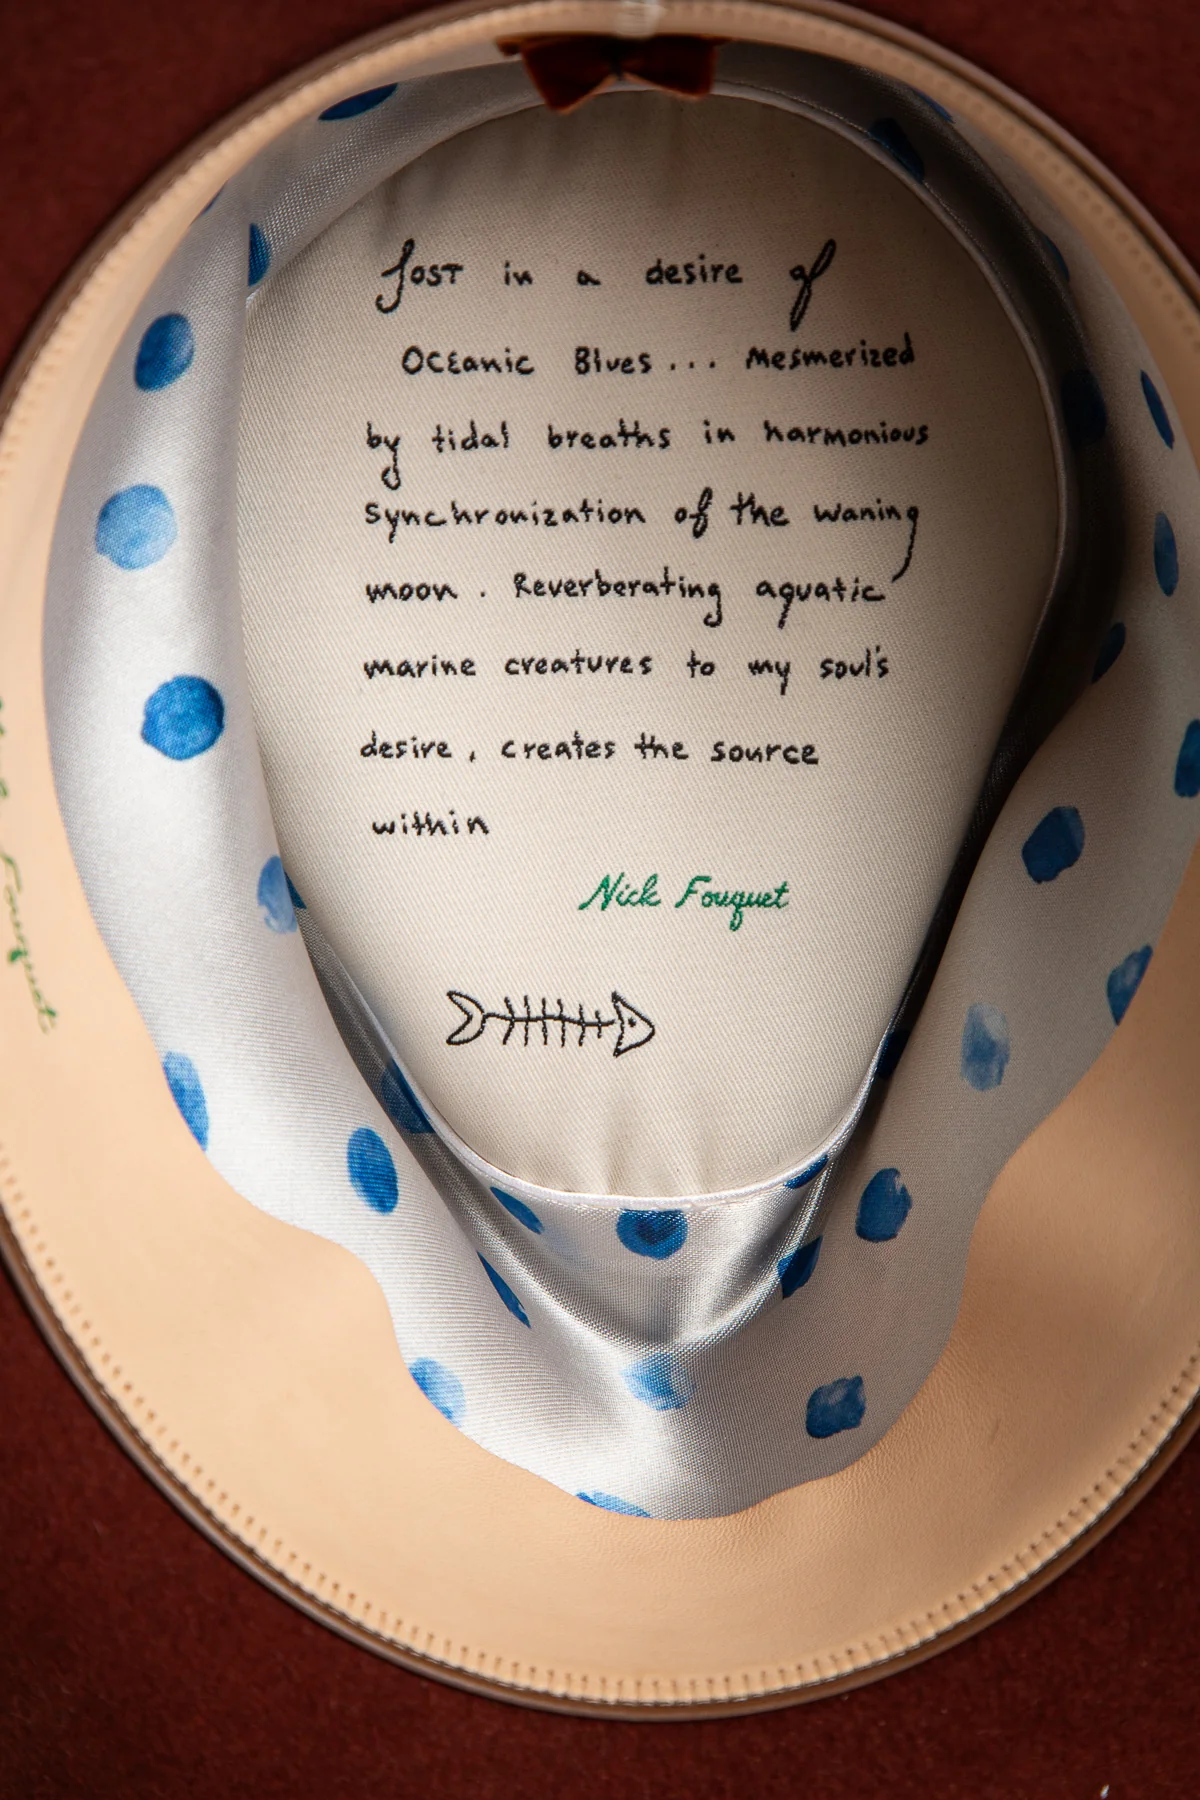 Lost in a desire of
Oceanic Blues... Mesmerized
by tidal breaths in harmonious
synchronization of the waning
moon. Reverberating aquatic
marine creatures to my soul's
desire, creates the source
within
Nick Fouquet
Fouquet